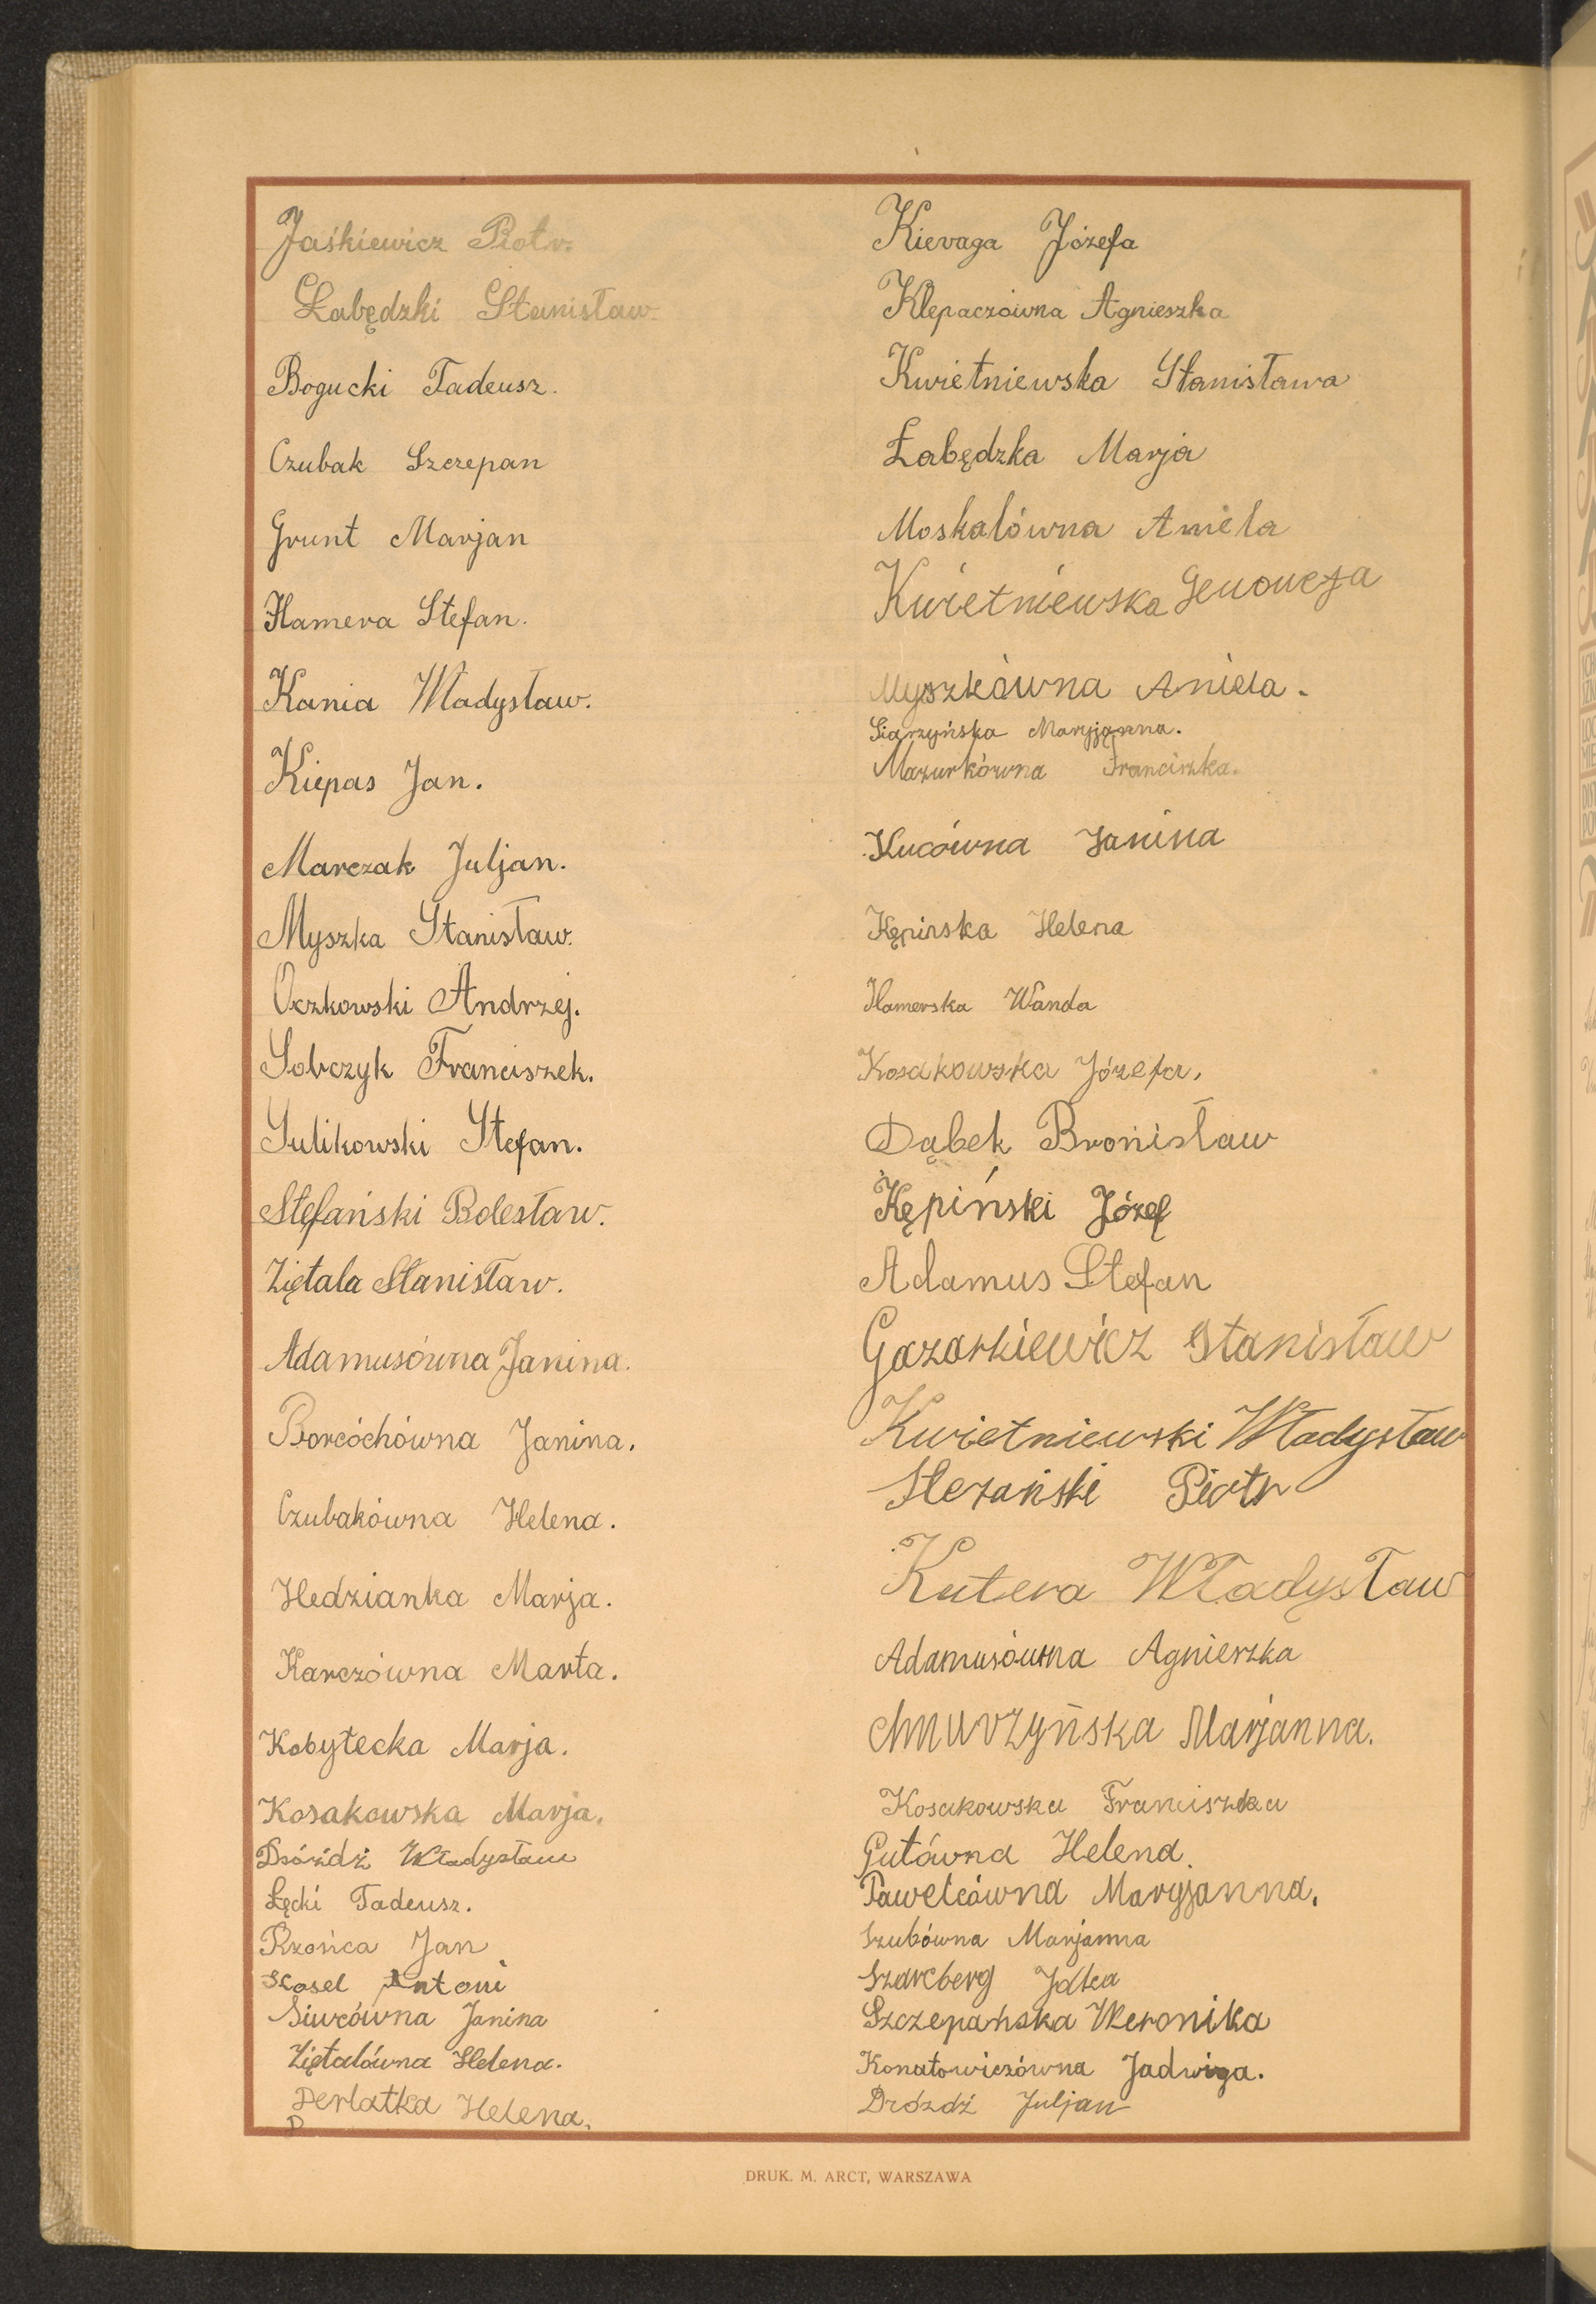 Jaśkiewicz Piotr.
Łabędzki Stanisław.
Bogucki Tadeusz.
Czubak Szczepan
Grunt Marjan
Hamera Stefan.
Kania Władysław.
Kiepas Jan.
Marczak Juljan.
Myszka Stanisław.
Oczkowski Andrzej.
Sobczyk Franciszek.
Sulikowski Stefan.
Stefański Bolesław.
Ziętala Stanisław.
Adamusówna Janina.
Borcóchówna Janina.
Czubakówna Helena.
Hedzianka Marja.
Karczówna Marta.
Kobyłecka Marja.
Kosakowska Marja.
Dróżdż Władysław
Łęcki Tadeusz.
Rzońca Jan
Kosel Antoni
Siwcówna Janina
Ziętalówna Helena.
Perlatka Helena.
P
Kieraga Józefa
Klepaczówna Agnieszka
Kwietniewska Stanisława
Łabędzka Marja
Moskalówna Aniela
Kwietniewska Genowefa
Myszkówna Aniela.
Siarzyńska Maryjanna.
Mazurkówna Franciszka.
Kucówna Janina
Kępinska Helena
Hamerska Wanda
Kosakowska Józefa,
Dąbek Bronisław
Kępiński Józef
Adamus Stefan
Gazarkiewicz Stanisław
Kwietniewski Władysław
Piotr
Kutera Władysław
Adamusówna Agnieszka
Chmurzyńska Marjanna.
Kosakowska Franciszka
Gutówna Helena.
Pawelcówna Maryjanna.
Szubówna Marjanna
Szarcberg
Szczepańska Weronika
Konatowiczówna Jadwiga.
Dróżdż Juljan
DRUK. M. ARCT, WARSZAWA